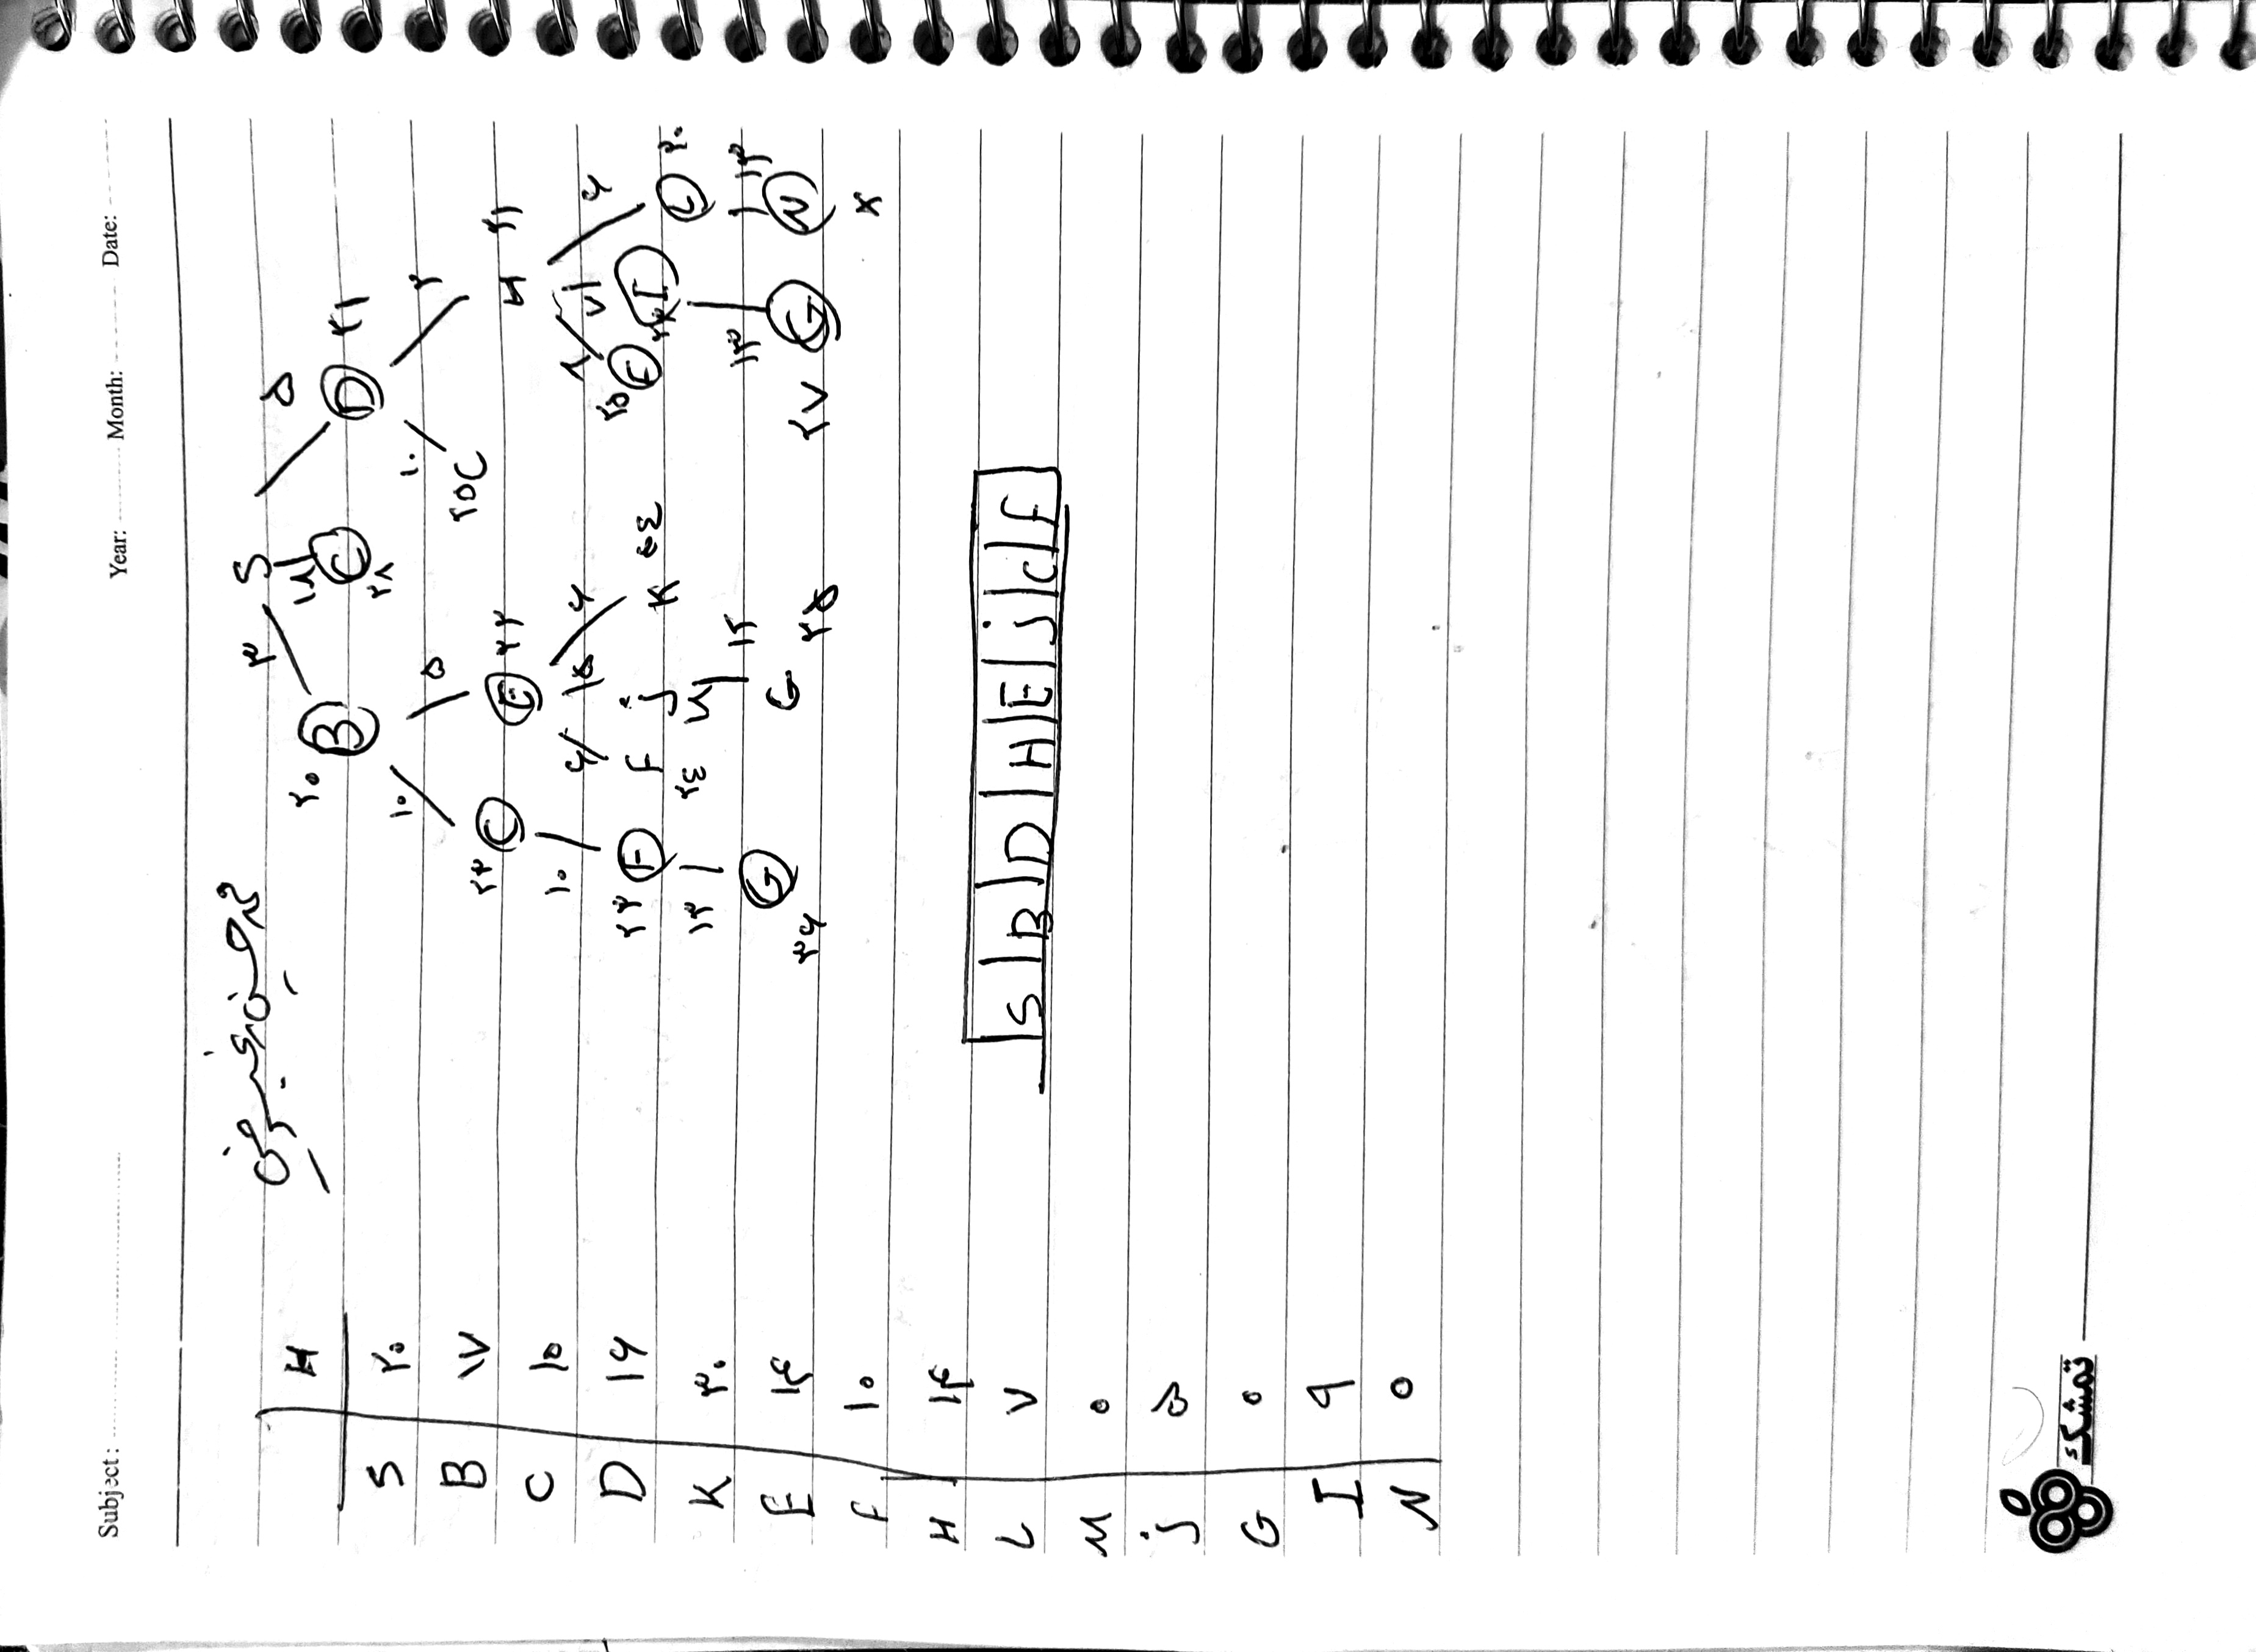 Subject: Year: Month: Date:
محمد حسین
H
S ۲۰
B ۱۷
C ۱۰
D ۱۶
K ۳۰
E ۱۴
F ۱۰
H ۱۴
L ۷
M ۰
j ۵
G ۰
I ۹
N ۰
۳ S ۵
۲۰ B ۱۸ C ۲۸ D ۲۱
۱۰ ۵ ۱۰ ۲
۲۳ C E ۲۲ ۲۵ C H ۲۱
۱۰ ۶ ۱۵ ۶ ۸ ۷ ۶
۲۳ F F j K ۲۵ E I L ۲۰
۱۳ ۲٤ ۱۲ ۱۳ ۱۳
G G G N
۳۶ ۲۵ ۲۷ x
S B D H E j C F
تمشک